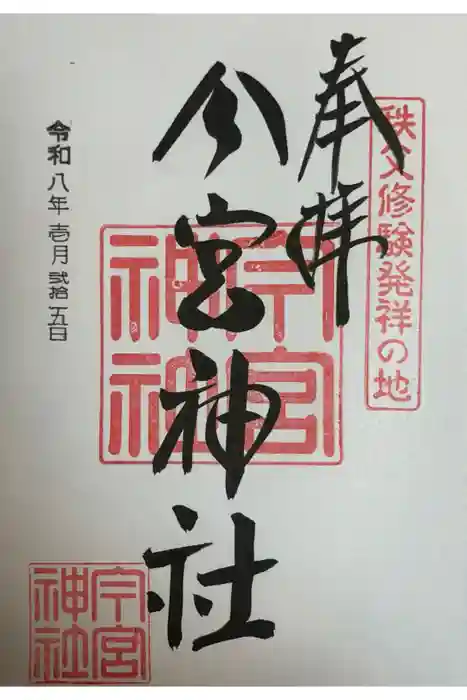 奉拝
秩父修験発祥の地
今宮神社
今宮神社
令和八年壱月弐拾五日
今宮神社